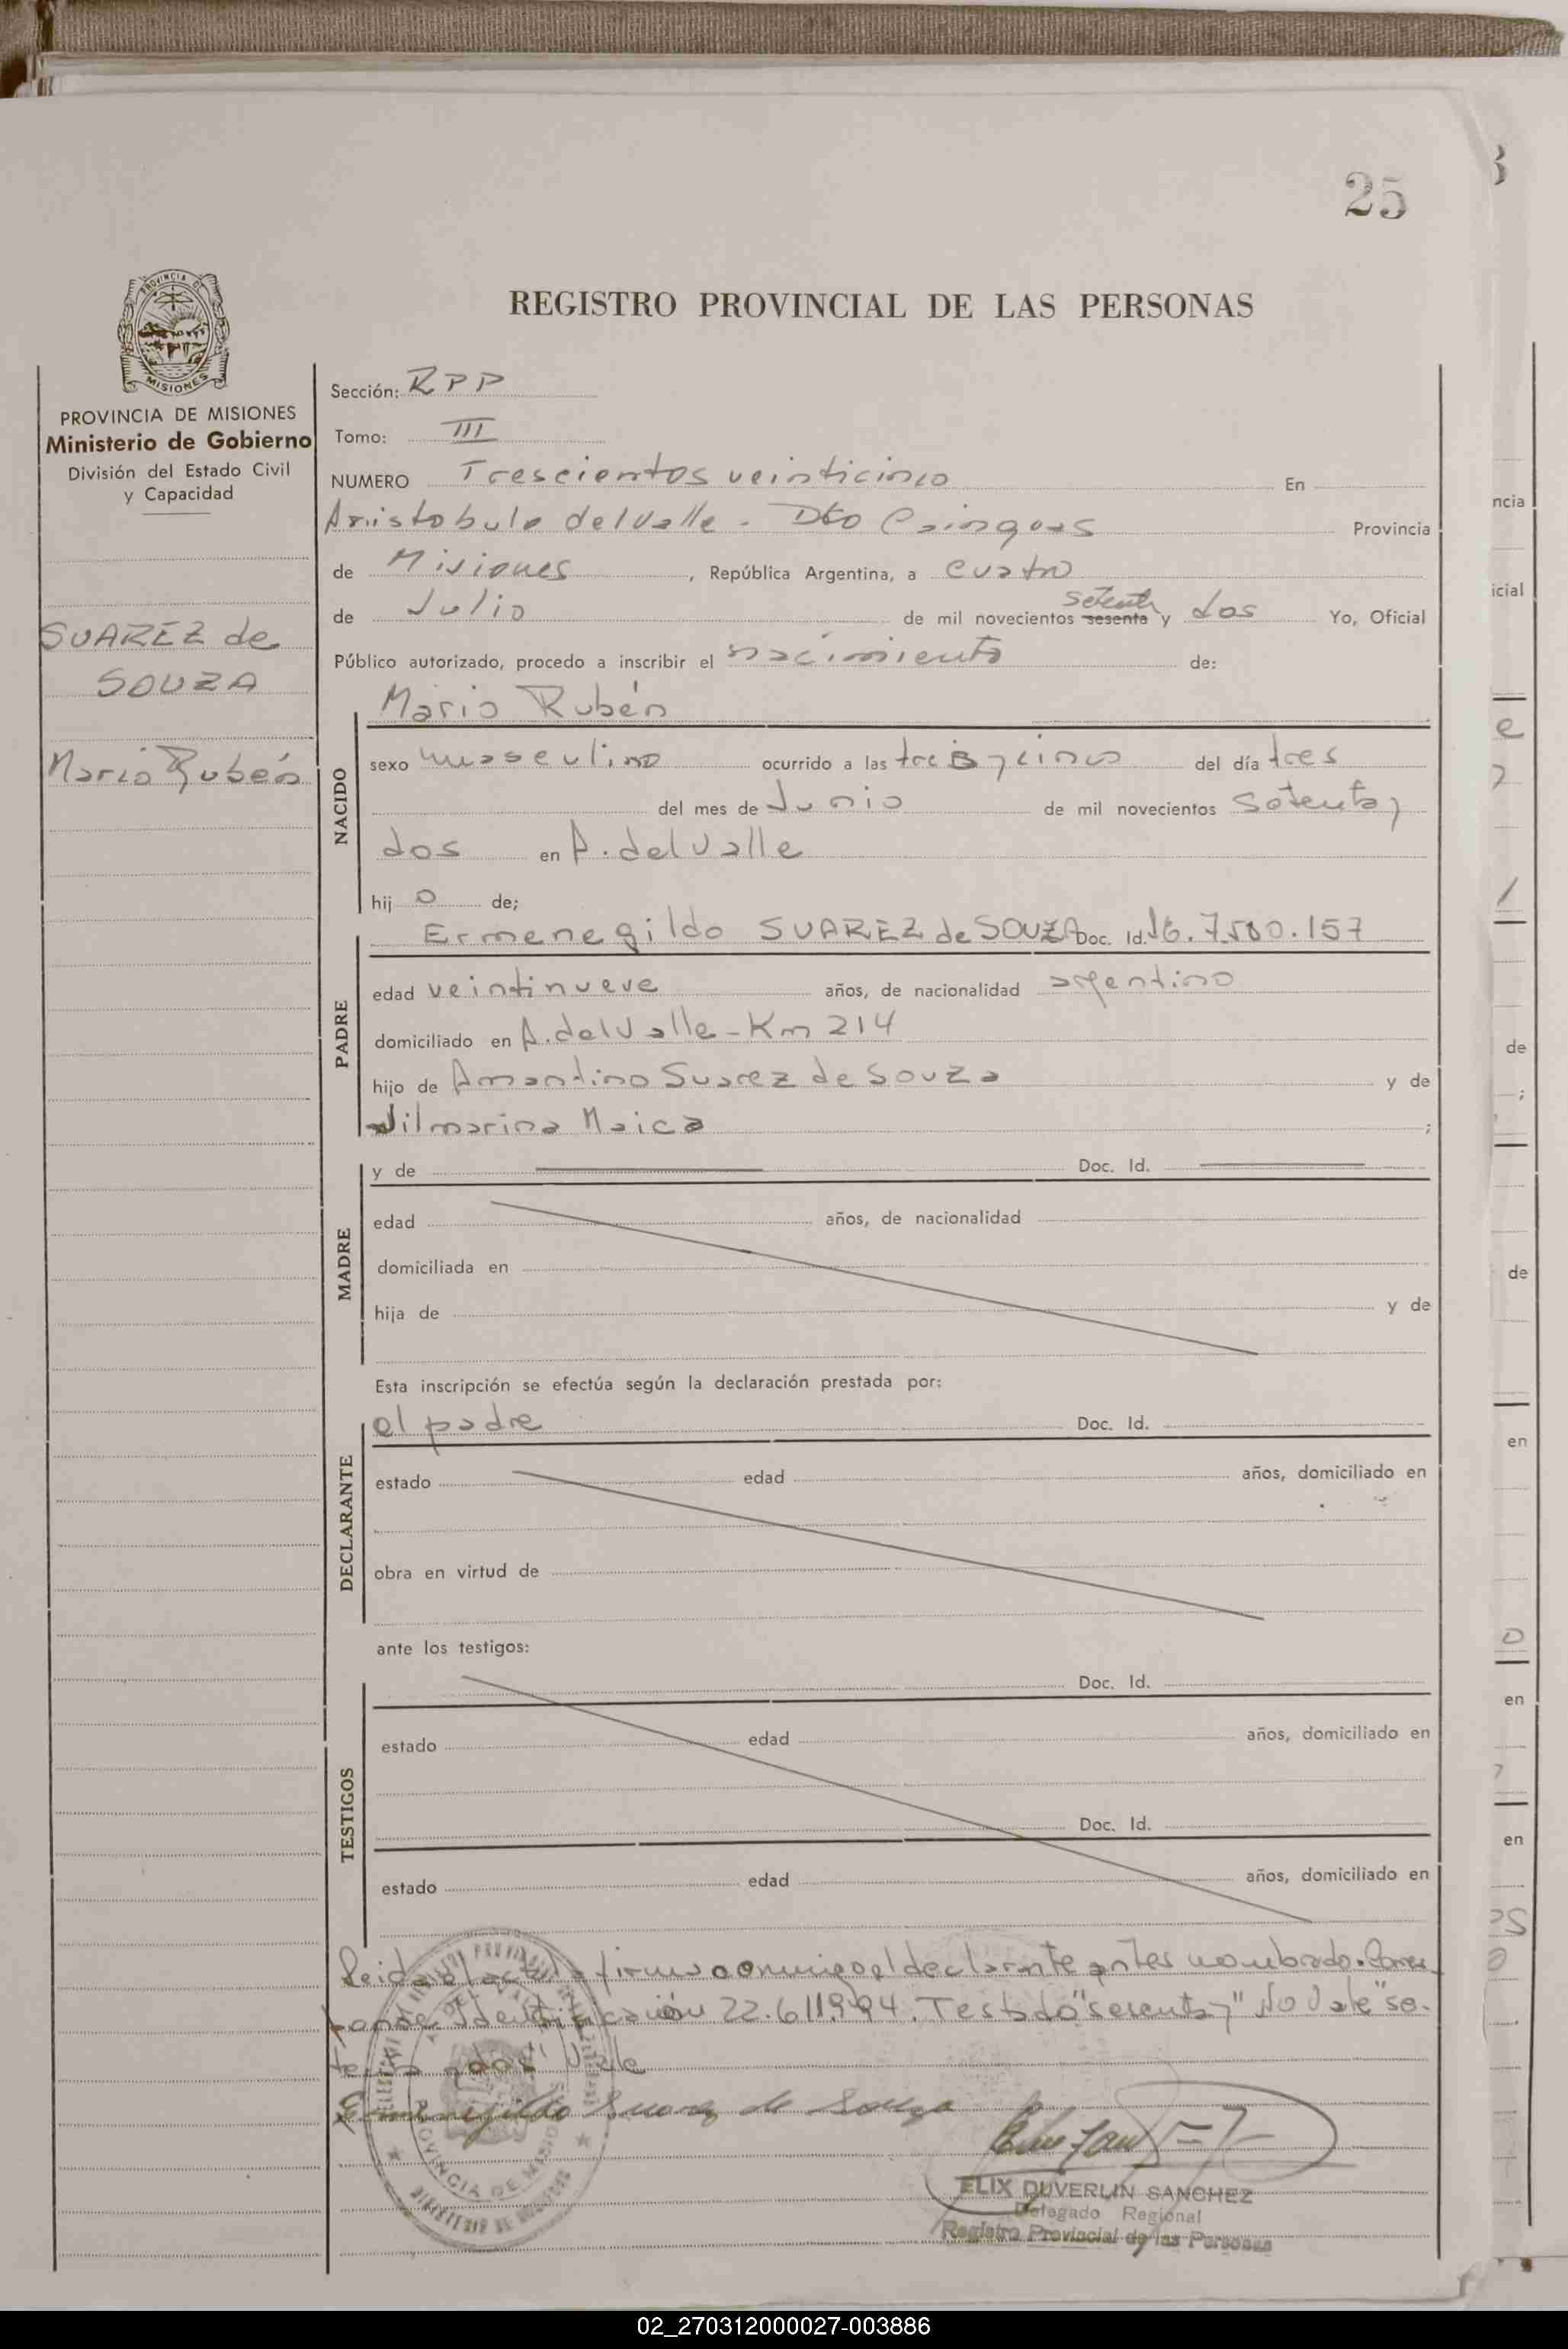 25
REGISTRO PROVINCIAL DE LAS PERSONAS
PROVINCIA DE MISIONES
Ministerio de Gobierno
División del Estado Civil
y Capacidad
SUAREZ de
SOUZA
Mario Rubén
Sección: RPP
Tomo: III
NUMERO Trescientos veinticinco En
Aristobulo del Valle - Dto Cainguas Provincia
de Misiones, República Argentina, a cuatro
de Julio de mil novecientos sesenta setenta y dos Yo, Oficial
Público autorizado, procedo a inscribir el nacimiento de:
NACIDO
Mario Rubén
sexo masculino ocurrido a las tres y cinco del día tres
del mes de Junio de mil novecientos setenta y
dos en A. del Valle
hij o de;
PADRE
Ermenegildo SUAREZ de SOUZA Doc. Id. 7.500.157
edad veintinueve años, de nacionalidad argentino
domiciliado en A. del Valle - Km 214
hijo de Amantino Suarez de Souza y de
Maica ;
MADRE
y de Doc. Id.
edad años, de nacionalidad
domiciliada en
hija de y de
Esta inscripción se efectúa según la declaración prestada por:
DECLARANTE
el padre Doc. Id.
estado edad años, domiciliado en
obra en virtud de
ante los testigos:
TESTIGOS
Doc. Id.
estado edad años, domiciliado en
Doc. Id.
estado edad años, domiciliado en
Leida el acta la firma conmigo el declarante antes nombrado. Corres
ponde Identificación 22.611.994. Testado "sesenta y" No Vale "se-
tenta y dos" Vale
Ermenegildo Suarez de Souza
ELIX DUVERLIN SANCHEZ
Delegado Regional
Registro Provincial de las Personas
02_270312000027-003886